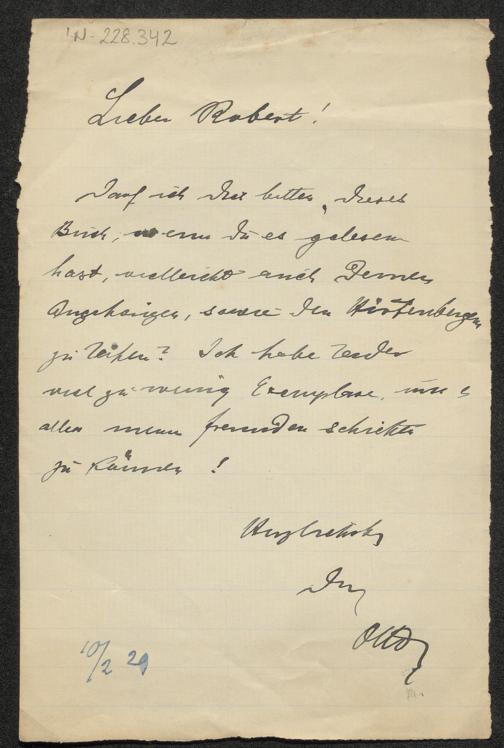 IN-228.342
Lieber Robert!
Darf ich Dich bitten, dieses
Buch, wenn Du es gelesen
hast, vielleicht auch Deinen
Angehörigen, sowie den Hirtenbergern
zu leihen? Ich habe leider
viel zu wenig Exemplare, um es
allen meinen Freunden schicken
zu können!
Herzlichst
Dein
Otto
10/2 29